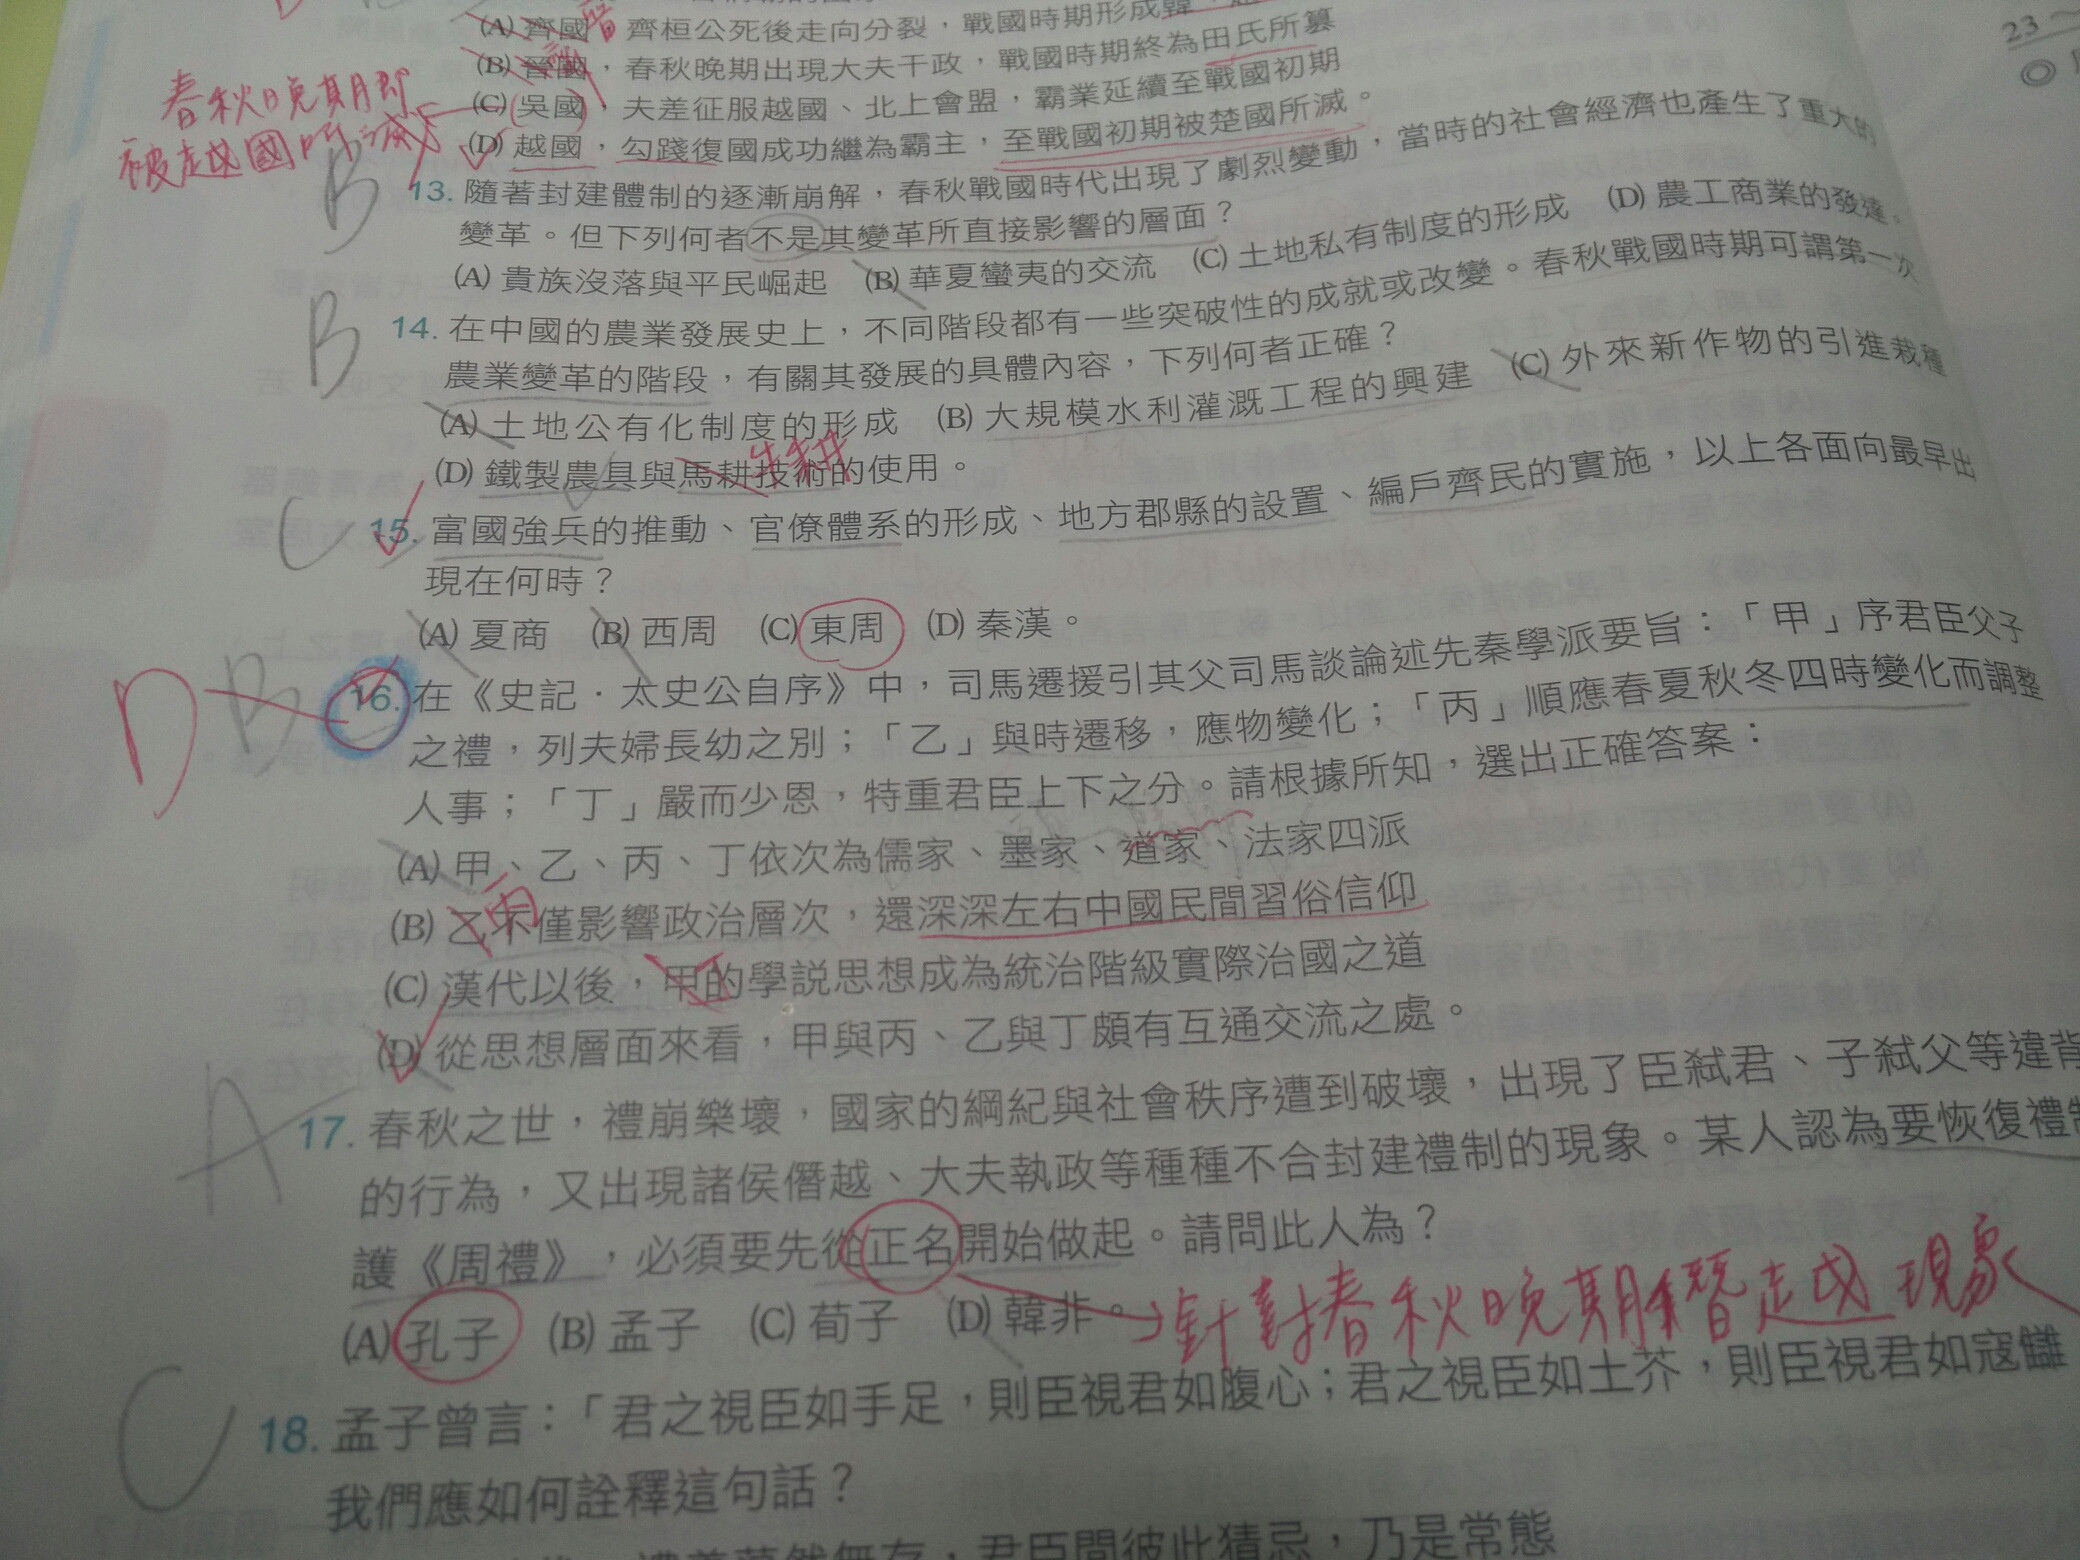 (A) 齊國 晉 齊桓公死後走向分裂，戰國時期形成韓、
(B) 晉國，春秋晚期出現大夫干政，戰國時期終為田氏所篡
(C) 吳國，夫差征服越國、北上會盟，霸業延續至戰國初期
(D) 越國，勾踐復國成功繼為霸主，至戰國初期被楚國所滅。
春秋晚期即
被越國所滅
B
13. 隨著封建體制的逐漸崩解，春秋戰國時代出現了劇烈變動，當時的社會經濟也產生了重大的
變革。但下列何者不是其變革所直接影響的層面？
(A) 貴族沒落與平民崛起 (B) 華夏蠻夷的交流 (C) 土地私有制度的形成 (D) 農工商業的發達。
B
14. 在中國的農業發展史上，不同階段都有一些突破性的成就或改變。春秋戰國時期可謂第一次
農業變革的階段，有關其發展的具體內容，下列何者正確？
(A) 土地公有化制度的形成 (B) 大規模水利灌溉工程的興建 (C) 外來新作物的引進栽種
牛耕
(D) 鐵製農具與馬耕技術的使用。
C
15. 富國強兵的推動、官僚體系的形成、地方郡縣的設置、編戶齊民的實施，以上各面向最早出
現在何時？
(A) 夏商 (B) 西周 (C) 東周 (D) 秦漢。
D B
16. 在《史記．太史公自序》中，司馬遷援引其父司馬談論述先秦學派要旨：「甲」序君臣父子
之禮，列夫婦長幼之別；「乙」與時遷移，應物變化；「丙」順應春夏秋冬四時變化而調整
人事；「丁」嚴而少恩，特重君臣上下之分。請根據所知，選出正確答案：
(A) 甲、乙、丙、丁依次為儒家、墨家、道家、法家四派
丙
(B) 乙不僅影響政治層次，還深深左右中國民間習俗信仰
(C) 漢代以後，甲的學説思想成為統治階級實際治國之道
丁
(D) 從思想層面來看，甲與丙、乙與丁頗有互通交流之處。
A
17. 春秋之世，禮崩樂壞，國家的綱紀與社會秩序遭到破壞，出現了臣弒君、子弒父等違背
的行為，又出現諸侯僭越、大夫執政等種種不合封建禮制的現象。某人認為要恢復禮制
護《周禮》，必須要先從正名開始做起。請問此人為？
(A) 孔子 (B) 孟子 (C) 荀子 (D) 韓非。
針對春秋晚期僭越現象
C
18. 孟子曾言：「君之視臣如手足，則臣視君如腹心；君之視臣如土芥，則臣視君如寇讎
我們應如何詮釋這句話？
禮義蕩然無存，君臣間彼此猜忌，乃是常態
23～